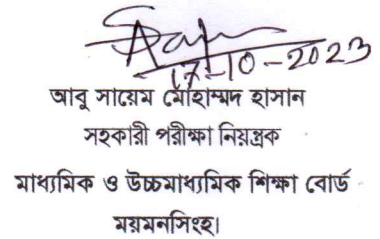 17-10-2023
আবু সায়েম মোহাম্মদ হাসান
সহকারী পরীক্ষা নিয়ন্ত্রক
মাধ্যমিক ও উচ্চমাধ্যমিক শিক্ষা বোর্ড
ময়মনসিংহ।